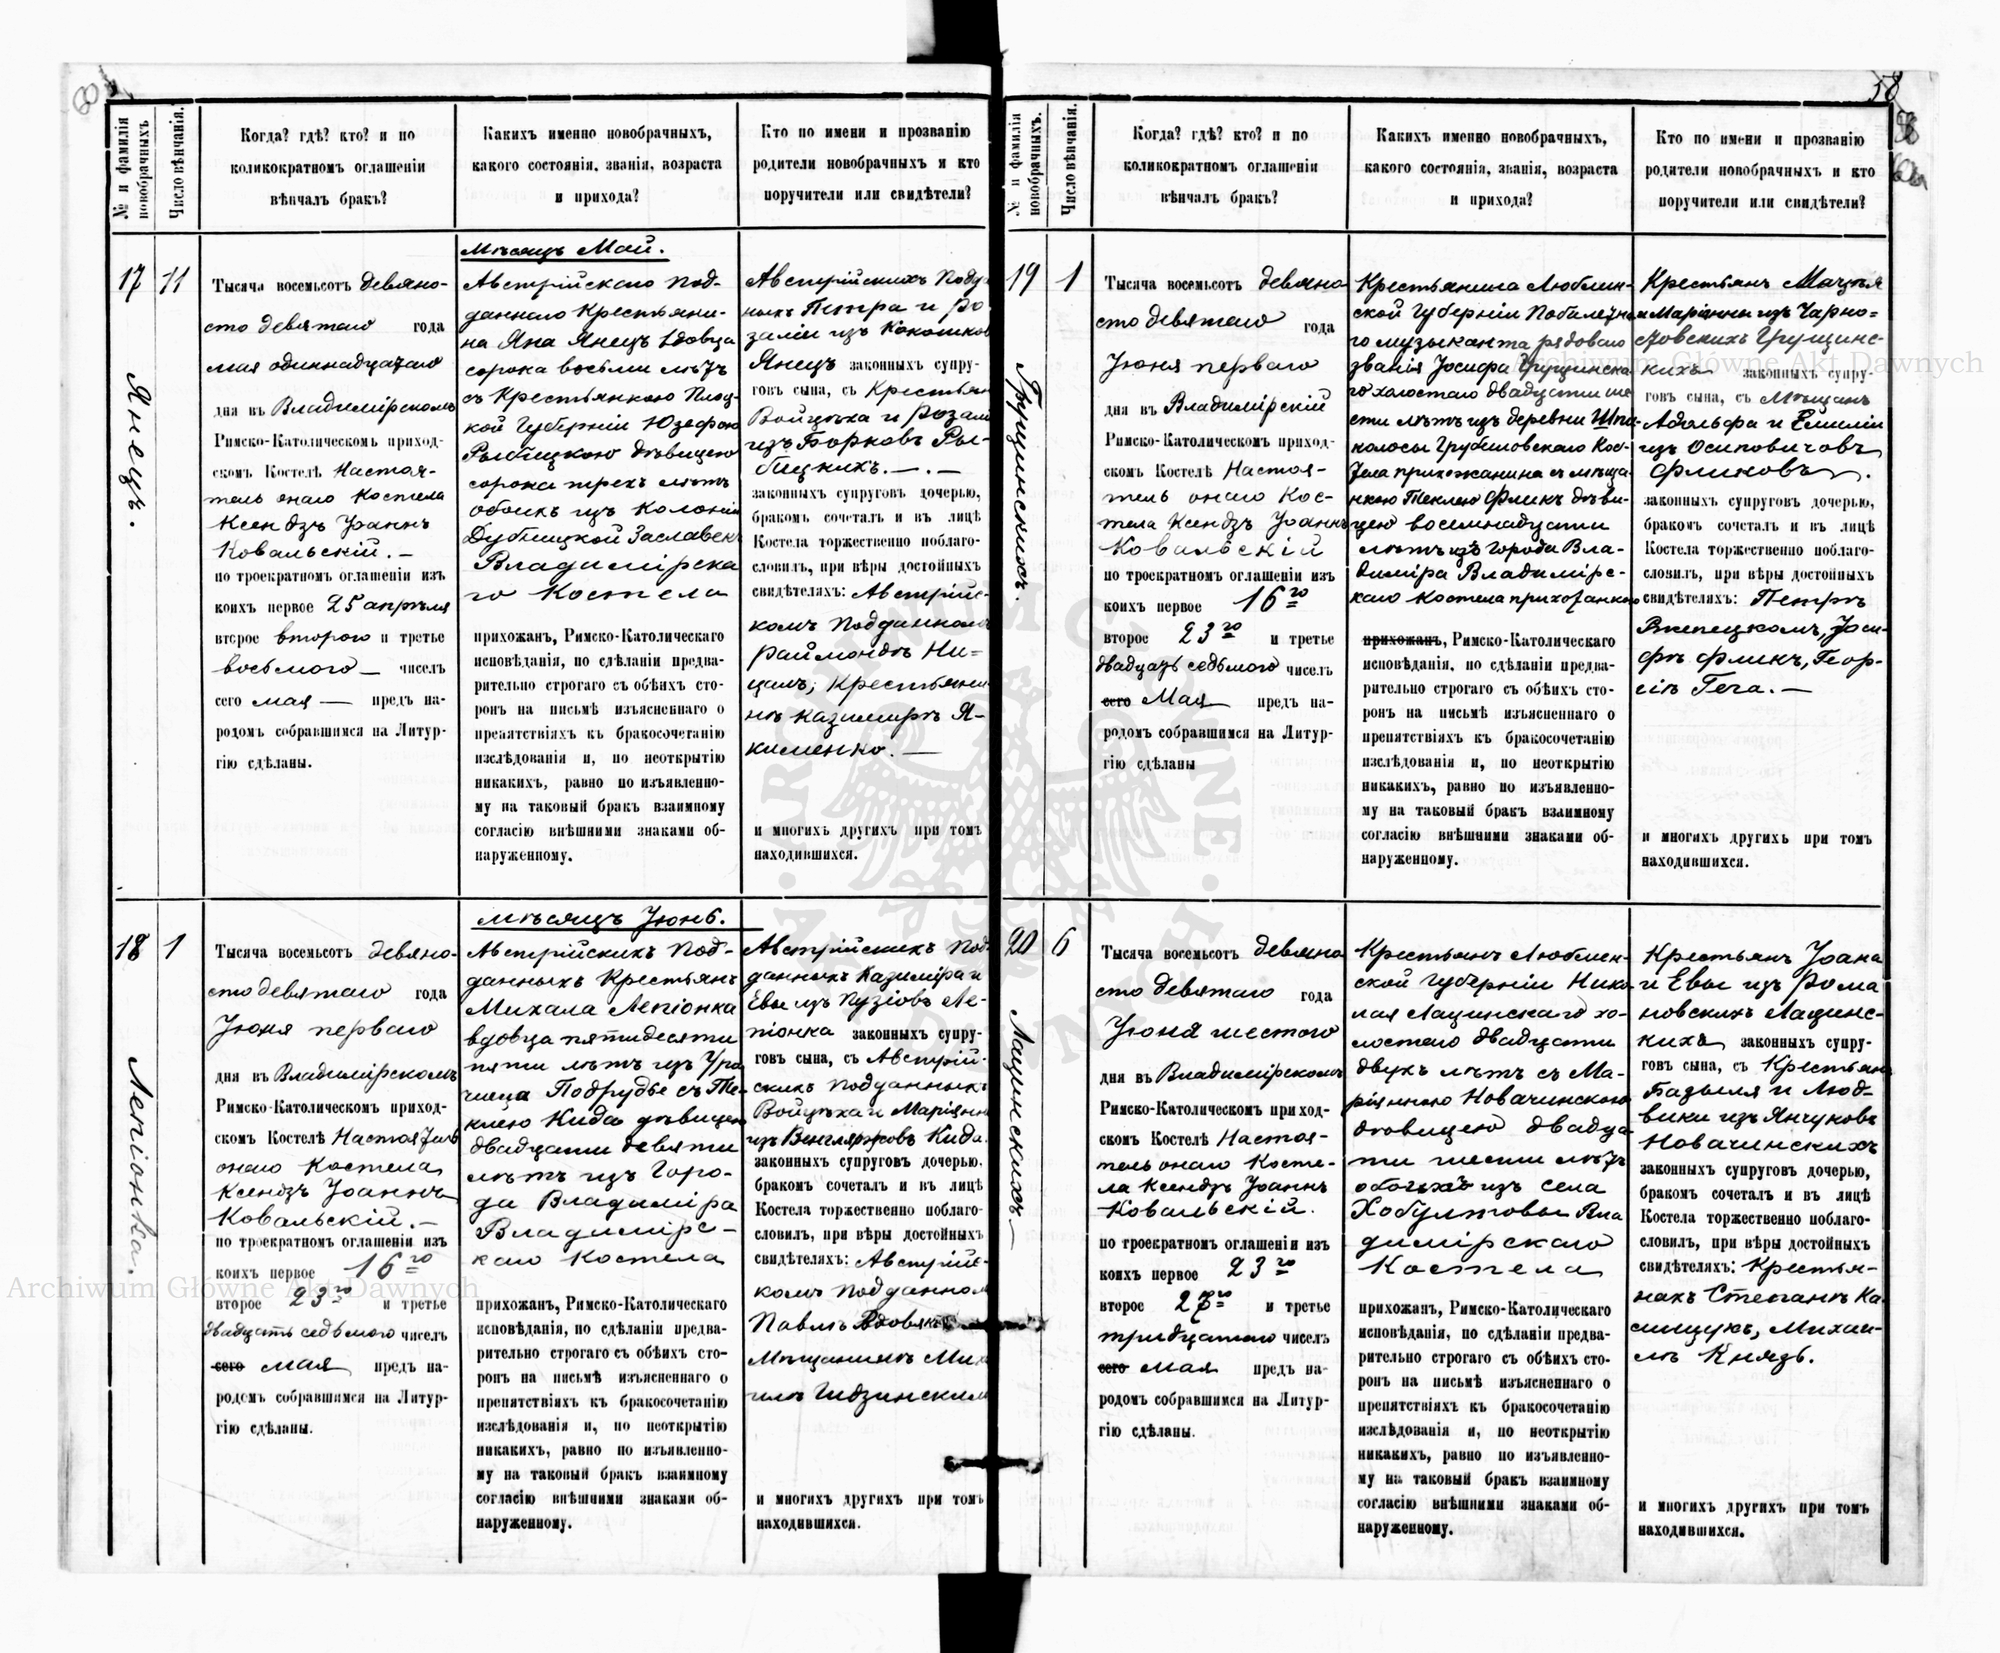 60
№ и фамилія новобрачныхъ
Число вѣнчанія.
Когда? гдѣ? кто? и по
коликократномъ оглашеніи
вѣнчалъ бракъ?
Какихъ именно новобрачныхъ,
какого состоянія, званія, возраста
и прихода?
Кто по имени и прозванію
родители новобрачныхъ и кто
поручители или свидѣтели?
17
11
Янецъ.
Тысяча восемьсотъ девяно-
сто девятаго года
мая одиннадцатаго
дня въ Владимірскомъ
Римско-Католическомъ приход-
скомъ Костелѣ Настоя-
тель онаго Костела
Ксендзъ Іоаннъ
Ковальскій. —
по троекратномъ оглашеніи изъ
коихъ первое 25 апрѣля
второе второго и третье
восьмого — чиселъ
сего мая — предъ на-
родомъ собравшимся на Литур-
гію сдѣланы.
Мѣсяцъ Май.
Австрійскаго под-
даннаго Крестьяни-
на Яна Янецъ вдовца
сорока восьми лѣтъ
съ Крестьянкою Плоц-
кой Губерніи Юзефою
Рыбицкою дѣвицею
сорока трехъ лѣтъ
обоихъ изъ Колоніи
Дубницкой Заславск
Владимірска
го Костела
прихожан, Римско-Католическаго
исповѣданія, по сдѣланіи предва-
рительно строгаго съ обѣихъ сто-
ронъ на письмѣ изъясненнаго о
препятствіяхъ къ бракосочетанію
изслѣдованія и, по неоткрытію
никакихъ, равно по изъявленно-
му на таковый бракъ взаимному
согласію внѣшними знаками об-
наруженному.
Австрійскихъ Подда
ныхъ Петра и Ро-
заліи изъ Кокошков
Янецъ законныхъ супру-
говъ сына, съ Крестьян
Войцѣха и Розали
изъ Борковъ Ры-
бицкихъ. — . —
законныхъ супруговъ дочерью,
бракомъ сочеталъ и въ лицѣ
Костела торжественно поблаго-
словилъ, при вѣры достойныхъ
свидѣтеляхъ: Австрій-
комъ Подданномъ
Раймондѣ Ни-
цамъ, Крестьяни-
нѣ Казимирѣ Я-
кименко. —
и многихъ другихъ при томъ
находившихся.
18
1
Лепіонка.
Тысяча восемьсотъ девяно-
сто девятаго года
Іюня перваго
дня въ Владимірскомъ
Римско-Католическомъ приход-
скомъ Костелѣ Настоятель
онаго Костела
Ксендзъ Іоаннъ
Ковальскій. —
по троекратномъ оглашеніи изъ
коихъ первое 16го
второе 23го и третье
двадцать седьмого чиселъ
сего мая предъ на-
родомъ собравшимся на Литур-
гію сдѣланы.
Мѣсяцъ Іюнь.
Австрійскихъ Под-
данныхъ Крестьянъ
Михала Лепіонка
вдовца пятидесяти
пяти лѣтъ изъ Уро
чища Подрудье съ Те-
клею Кида дѣвицею
двадцати девяти
лѣтъ изъ Горо-
да Владиміра
Владимірс-
каго Костела
прихожан, Римско-Католическаго
исповѣданія, по сдѣланіи предва-
рительно строгаго съ обѣихъ сто-
ронъ на письмѣ изъясненнаго о
препятствіяхъ къ бракосочетанію
изслѣдованія и, по неоткрытію
никакихъ, равно по изъявленно-
му на таковый бракъ взаимному
согласію внѣшними знаками об-
наруженному.
Австрійскихъ Под-
данныхъ Казиміра и
Евы изъ Пузіовъ Ле-
піонка законныхъ супру-
говъ сына, съ Австрій-
скихъ подданныхъ
Войцѣха и Маріанны
изъ Венгляржовъ Кида
законныхъ супруговъ дочерью,
бракомъ сочеталъ и въ лицѣ
Костела торжественно поблаго-
словилъ, при вѣры достойныхъ
свидѣтеляхъ: Австрійс-
комъ подданном
Павлѣ Вдовякъ
Мѣщанинѣ Миха
илѣ Гидзинскимъ
и многихъ другихъ при томъ
находившихся.
58
№ и фамилія новобрачныхъ.
Число вѣнчанія.
Когда? гдѣ? кто? и по
коликократномъ оглашеніи
вѣнчалъ бракъ?
Какихъ именно новобрачныхъ,
какого состоянія, званія, возраста
и прихода?
Кто по имени и прозванію
родители новобрачныхъ и кто
поручители или свидѣтели?
19
1
Грущинскихъ.
Тысяча восемьсотъ девяно-
сто девятаго года
Іюня перваго
дня въ Владимірскій
Римско-Католическомъ приход-
скомъ Костелѣ Настоя-
тель онаго Кос-
тела Ксендзъ Іоаннъ
Ковальскій
по троекратномъ оглашеніи изъ
коихъ первое 16го
второе 23го и третье
двадцать седьмого чиселъ
сего Мая предъ на-
родомъ собравшимся на Литур-
гію сдѣланы
Крестьянина Люблин-
ской Губерніи
го музыканта рядоваго
званія Іосифа Грущинска
го холостаго двадцати ше
сти лѣтъ изъ деревни Шпи
колосы Грубешовскаго Кос-
тела прихожанина съ мѣща-
нкою Теклею Фликъ дѣви-
цею восемнадцати
лѣтъ изъ города Вла-
диміра Владимірс-
каго Костела прихожанкою
прихожан, Римско-Католическаго
исповѣданія, по сдѣланіи предва-
рительно строгаго съ обѣихъ сто-
ронъ на письмѣ изъясненнаго о
препятствіяхъ къ бракосочетанію
изслѣдованія и, по неоткрытію
никакихъ, равно по изъявленно-
му на таковый бракъ взаимному
согласію внѣшними знаками об-
наруженному.
Крестьянъ Мацѣя
и Маріанны изъ Чарно-
Грущинс-
кихъ законныхъ супру-
говъ сына, съ Мѣщанъ
Адольфа и Емиліи
изъ Осиповичовъ
Фликовъ.
законныхъ супруговъ дочерью,
бракомъ сочеталъ и въ лицѣ
Костела торжественно поблаго-
словилъ, при вѣры достойныхъ
свидѣтеляхъ: Петрѣ
Ржепецкомъ, Іоси-
фѣ Фликъ, Геор-
гіѣ Геча. —
и многихъ другихъ при томъ
находившихся.
20
6
Лацинскихъ
Тысяча восемьсотъ девяно
сто девятаго года
Іюня шестого
дня въ Владимірскомъ
Римско-Католическомъ приход-
скомъ Костелѣ Настоя-
тель онаго Косте-
ла Ксендзъ Іоаннъ
Ковальскій.
по троекратномъ оглашеніи изъ
коихъ первое 23го
второе 27го и третье
тридцатаго чиселъ
сего мая предъ на-
родомъ собравшимся на Литур-
гію сдѣланы.
Крестьянъ Люблин-
ской Губерніи Нико
лая Лацинскаго хо-
лостаго двадцати
двухъ лѣтъ съ Ма-
ріянною Новачинскою
дѣвицею двадца-
ти шести лѣтъ
обоихъ изъ села
Хобултовы Вла
димірскаго
Костела
прихожан, Римско-Католическаго
исповѣданія, по сдѣланіи предва-
рительно строгаго съ обѣихъ сто-
ронъ на письмѣ изъясненнаго о
препятствіяхъ къ бракосочетанію
изслѣдованія и, по неоткрытію
никакихъ, равно по изъявленно-
му на таковый бракъ взаимному
согласію внѣшними знаками об-
наруженному.
Крестьян Іоана
и Евы изъ Рома
новскихъ Лацинс-
кихъ законныхъ супру-
говъ сына, съ Крестьян
Базыля и Люд-
вики изъ Янчуковъ
Новачинскихъ
законныхъ супруговъ дочерью,
бракомъ сочеталъ и въ лицѣ
Костела торжественно поблаго-
словилъ, при вѣры достойныхъ
свидѣтеляхъ: Крестья-
нахъ Степанѣ Ка-
сищукъ, Михаи-
лѣ Князь.
и многихъ другихъ при томъ
находившихся.
Archiwum Główne Akt Dawnych
Archiwum Główne Akt Dawnych